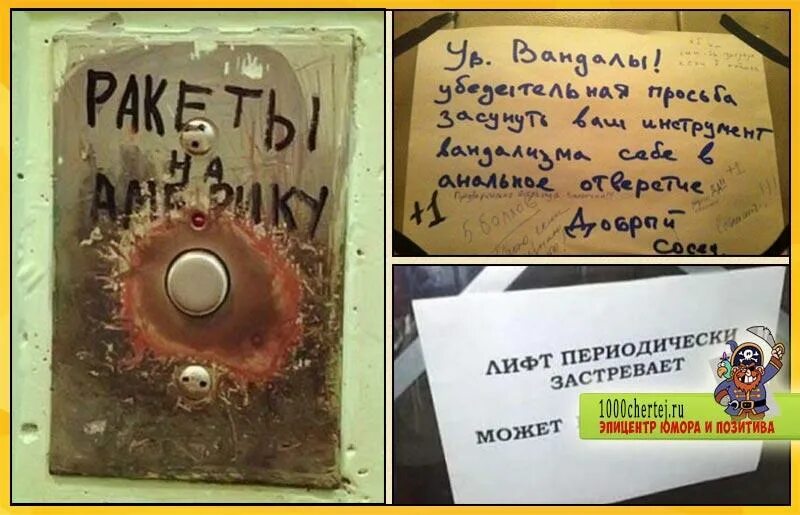 РАКЕТЫ
НА
АМЕРИКУ
Ув. Вандалы!
убедительная просьба
засунуть ваш инструмент
вандализма себе в
анальное отверстие
+1
+1
5 баллов
Добрый
сосед
ЛИФТ ПЕРИОДИЧЕСКИ
ЗАСТРЕВАЕТ
МОЖЕТ
1000chertej.ru
ЭПИЦЕНТР ЮМОРА И ПОЗИТИВА